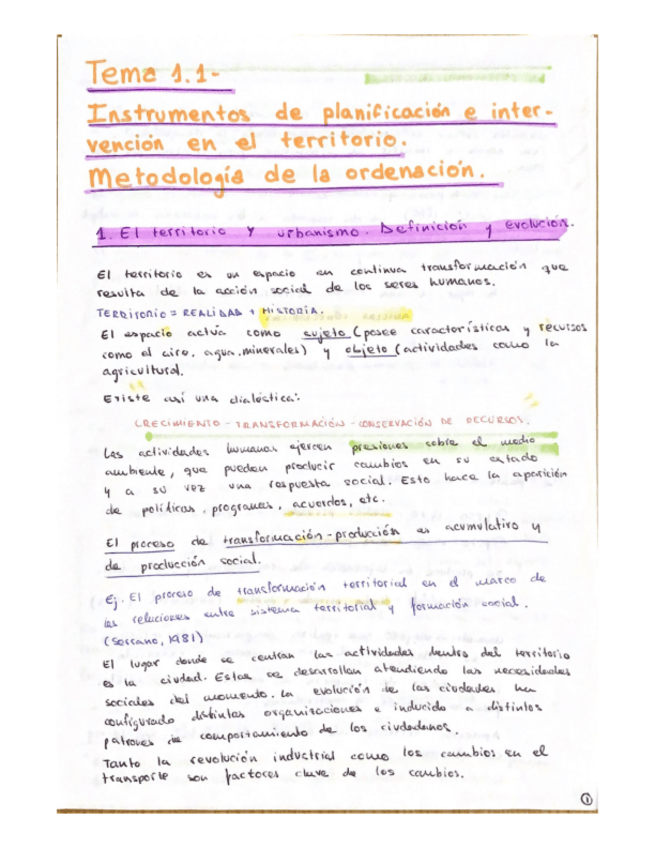 Tema 1.1-
Instrumentos de planificación e inter-
vención en el territorio.
Metodología de la ordenación.
1. El territorio y urbanismo. Definición y evolución.
El territorio es un espacio en continua transformación que
resulta de la acción social de los seres humanos.
TERRITORIO = REALIDAD + HISTORIA.
El espacio actúa como sujeto (posee características y recursos
como el aire, agua, minerales) y objeto (actividades como la
agricultura).
Existe así una dialéctica:
CRECIMIENTO - TRANSFORMACIÓN - CONSERVACIÓN DE RECURSOS.
Las actividades humanas ejercen presiones sobre el medio
ambiente, que pueden producir cambios en su estado
y a su vez una respuesta social. Esto hace la aparición
de políticas, programas, acuerdos, etc.
El proceso de transformación - producción es acumulativo y
de producción social.
Ej. El proceso de transformación territorial en el marco de
las relaciones entre sistema territorial y formación social.
(Serrano, 1981)
El lugar donde se centran las actividades dentro del territorio
es la ciudad. Estas se desarrollan atendiendo las necesidades
sociales del momento. La evolución de las ciudades ha
configurado distintas organizaciones e inducido a distintos
patrones de comportamiento de los ciudadanos.
Tanto la revolución industrial como los cambios en el
transporte son factores clave de los cambios.
1